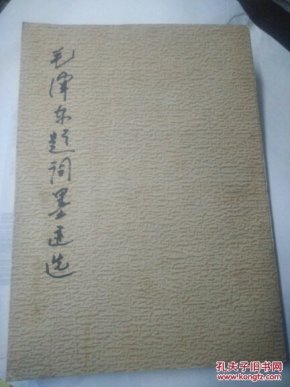 毛泽东题词墨迹选
孔夫子旧书网